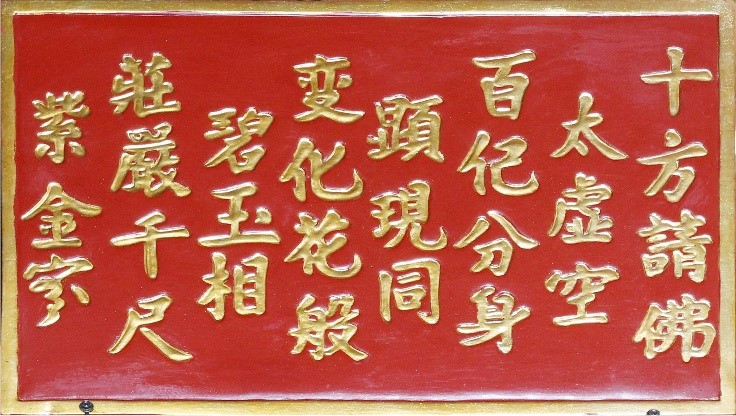 十方請佛
太虛空
百亿分身
顯現同
変化花般
碧玉相
莊嚴千尺
紫金